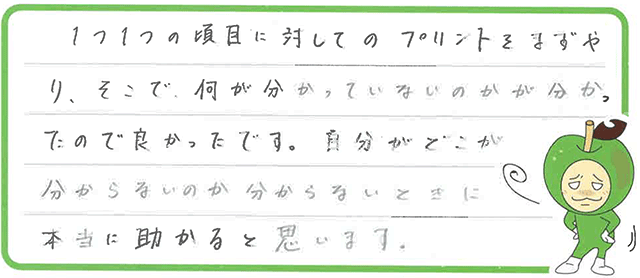 1つ1つの項目に対してのプリントをまずや
り、そこで、何が分かっていないのかが分かっ
たので良かったです。自分がどこが
分からないのか分からないときに
本当に助かると思います。